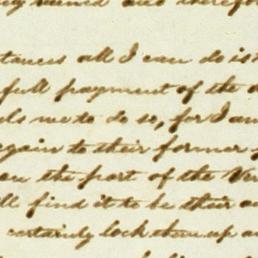 and therefor
tances all I can do is
full payment of the
ls me to do so, for I am
again to their former
on the part of the
ll find it to be their
certainly lock them up an